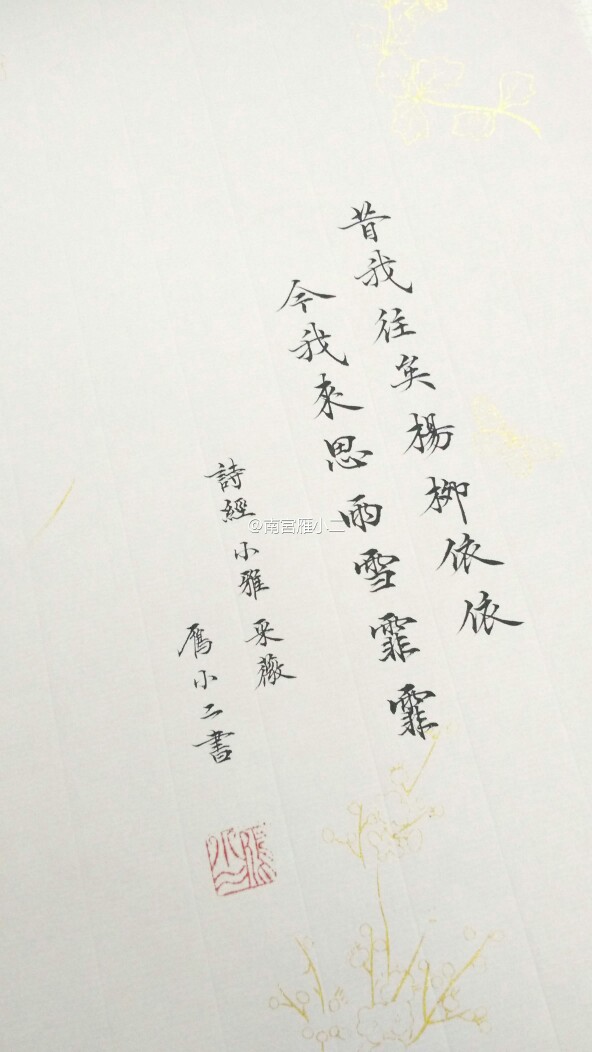 昔我往矣楊柳依依
今我來思雨雪霏霏
詩經 小雅 采薇
雁小二書
雁小二
@南宫雁小二